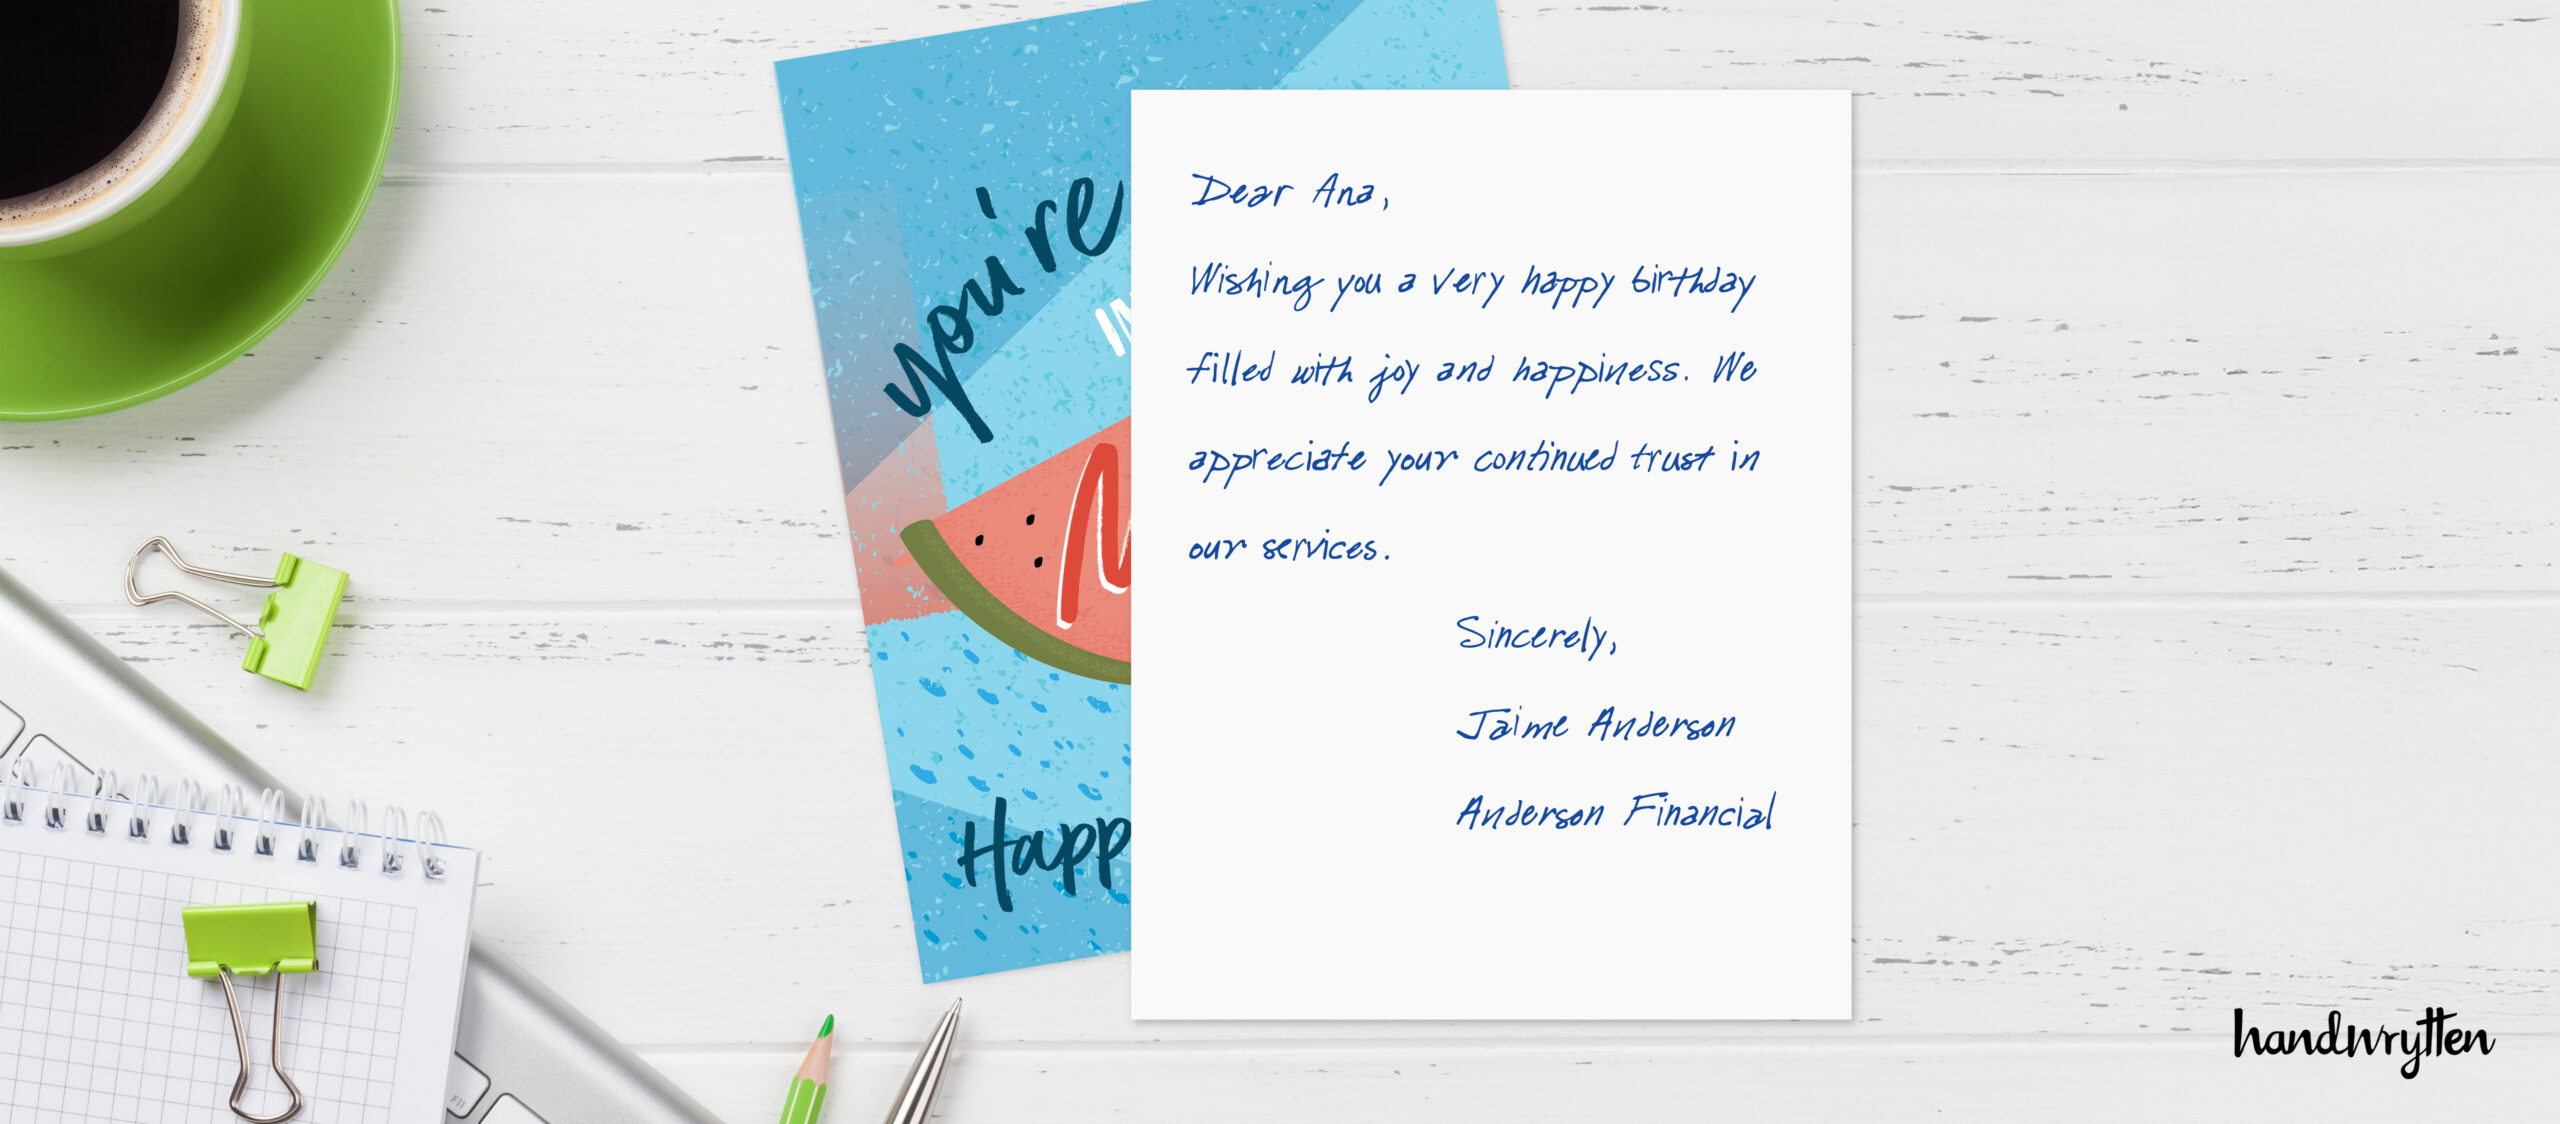 you're
Dear Ana,
Wishing you a very happy birthday
filled with joy and happiness. We
appreciate your continued trust in
our services.
Sincerely,
Jaime Anderson
Anderson Financial
Happ
F11
handwrytten